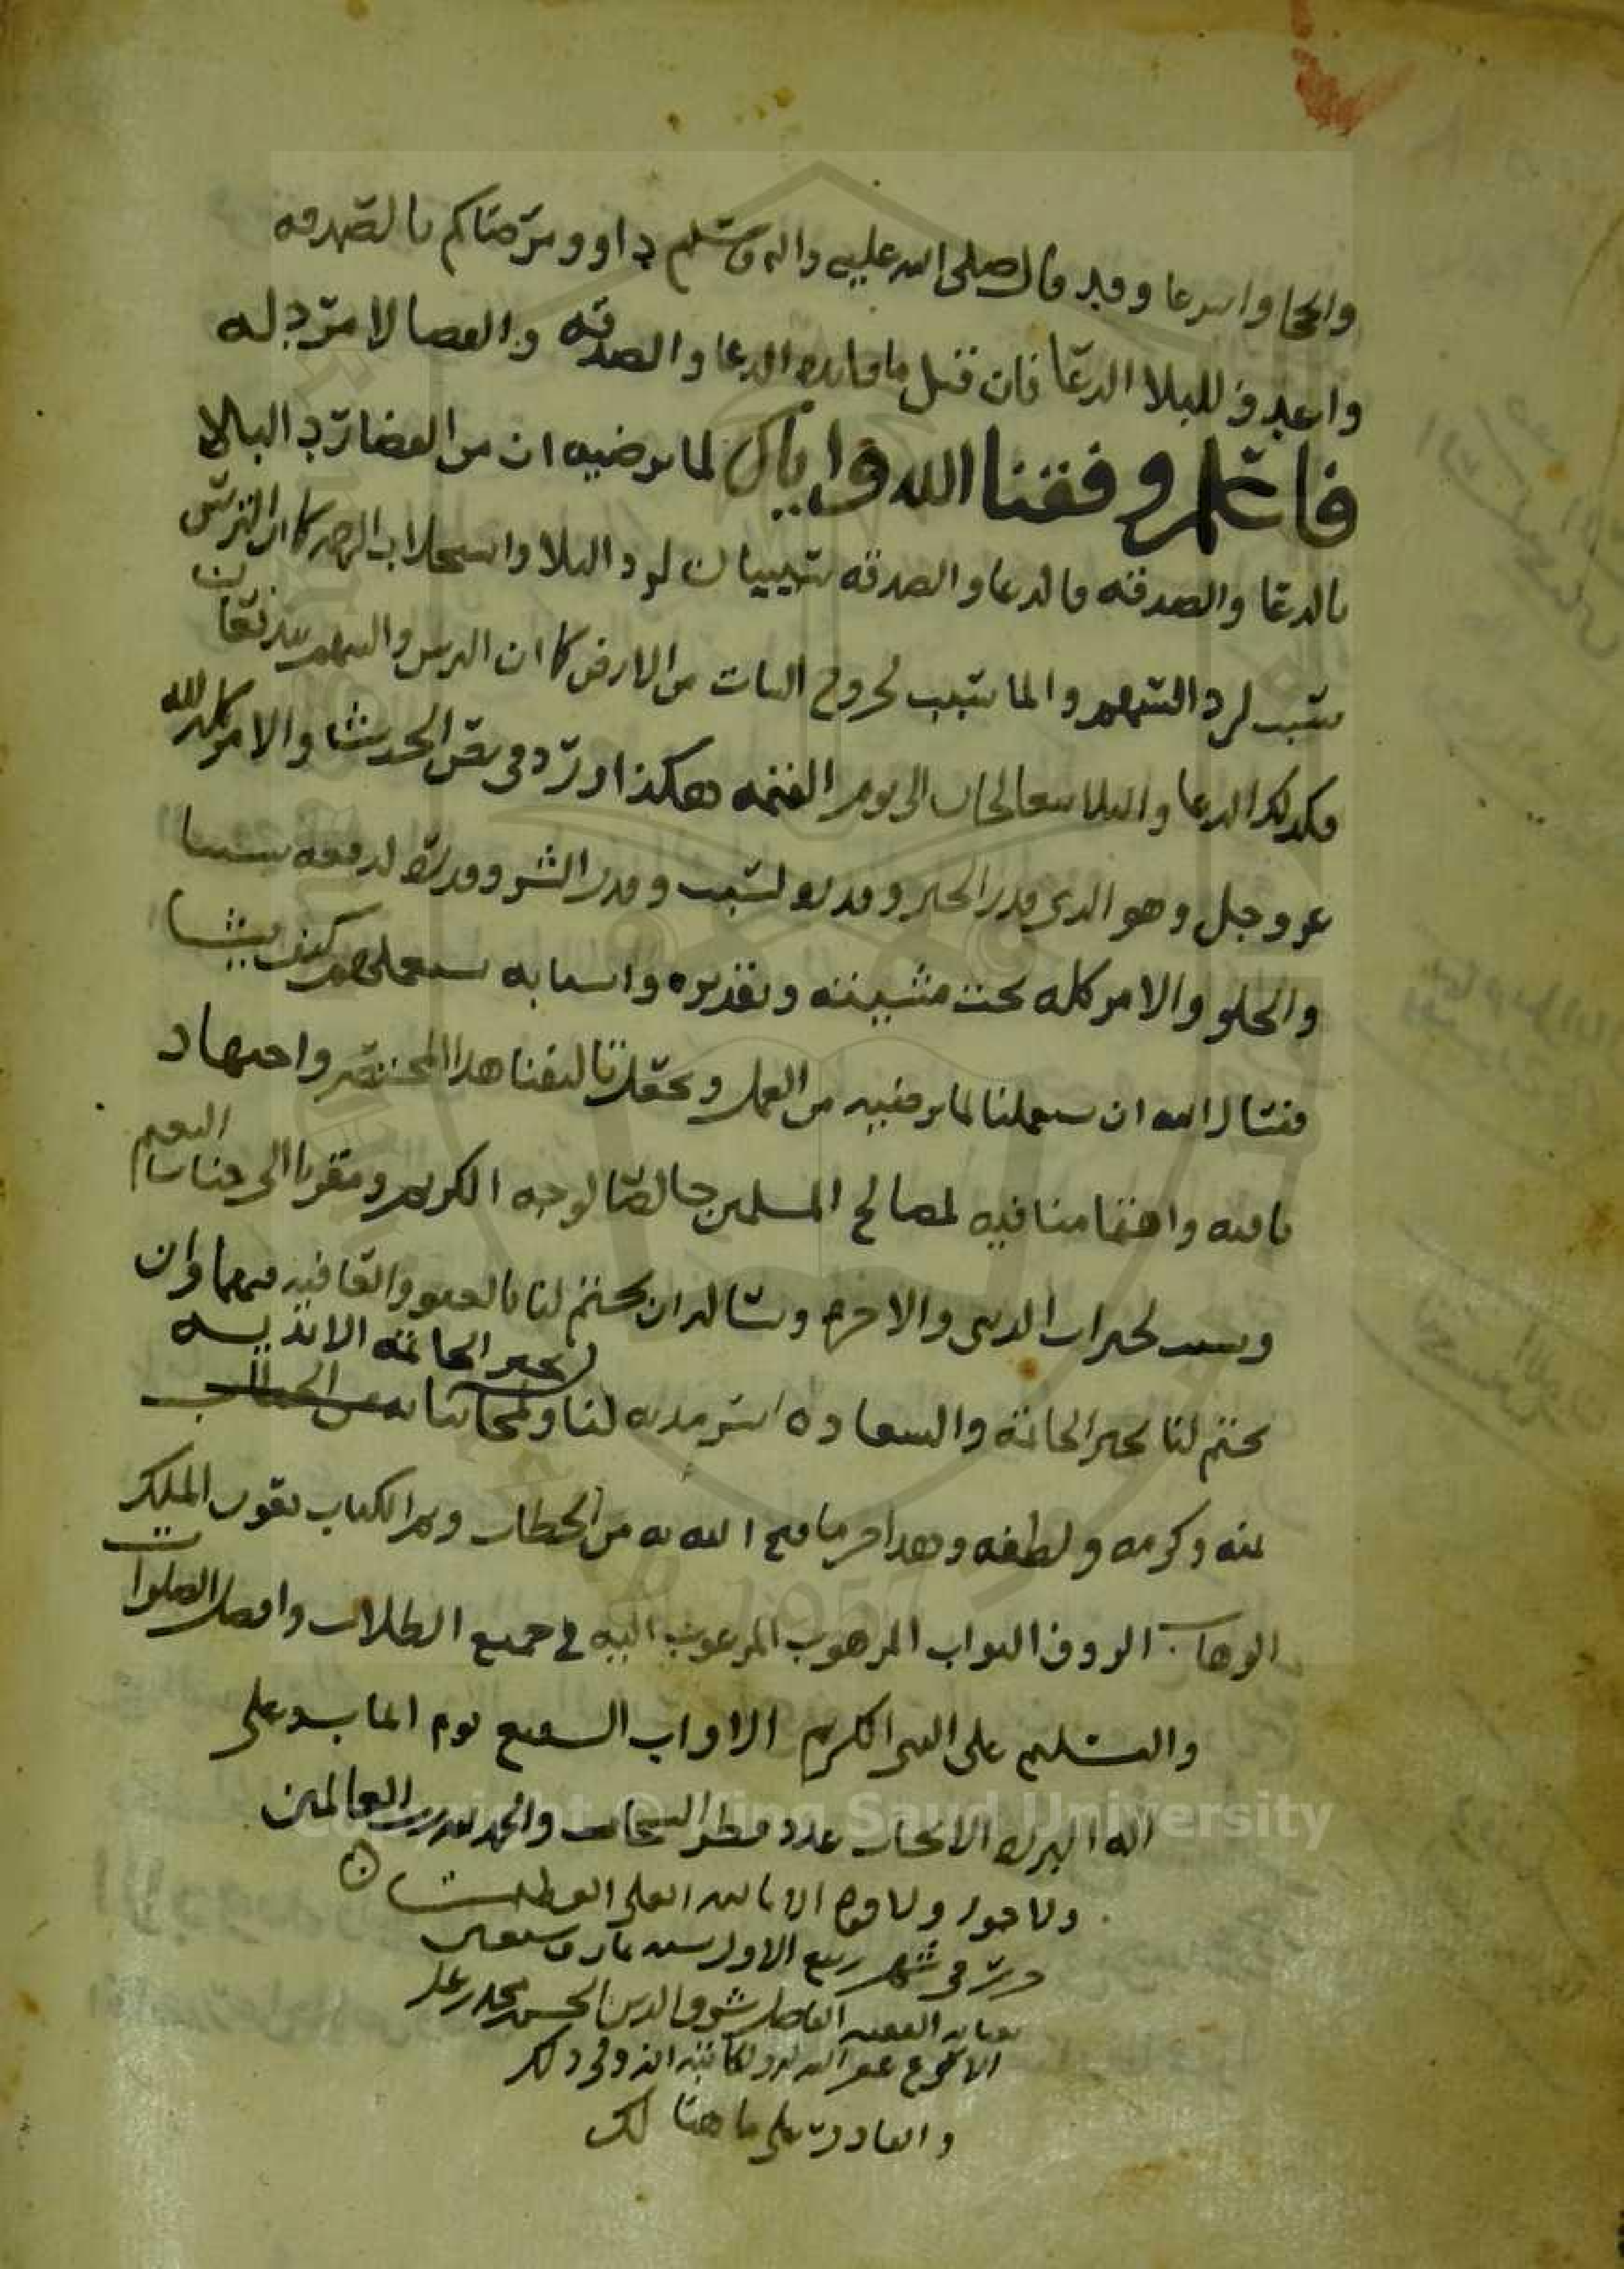 والجا واسرعا وقد قال صلى الله عليه واله وسلم داووا مرضاكم بالصدقه
واعدوا للبلا الدعا فان قيل ما فايده الدعا والصدقه والقضا لا مرد له
فاعلم وفقنا الله واياك لما يرضيه ان من القضا رد البلا
بالدعا والصدقه فالدعا والصدقه سببان لرد البلا واستجلاب الرحمه كما ان الترس
سبب لرد السهم والما سبب لخروج النبات من الارض كما ان الترس والسهم يتدافعان
فكذلك الدعا والبلا يتعالجان الى يوم القيمه هكذا ورد في بعض الحديث والامر كله لله
عز وجل وهو الذي قدر الخير وقدره لسبب وقدر الشر وقدر لدفعه سببا
والخلق والامر كله تحت مشيئته وتقديره واسبابه يستعملهم كيف يشا
فنسال الله ان يستعملنا لما يرضيه من العمل ويجعل تاليفنا هذا المختصر واجتهاد
نا فيه واهتمامنا فيه لمصالح المسلمين خالصا لوجهه الكريم ومقربا الى جنات النعيم
لخيرات الدنيا والاخره ونساله ان يختم لنا بالعفو والعافيه فيهما وان
بخير الخاتمه الابديه
يختم لنا بخير الخاتمة والسعاده السرمديه لنا
بمنه وكرمه ولطفه وهذا اخر ما فتح الله به من الخطاب وتم الكتاب بعون الملك
الوهاب الروف التواب المرهوب المرغوب اليه في جميع الطلاب وافضل الصلوات
والتسليم على النبي الكريم الاواب الشفيع يوم الماب وعلى
اله البرره الانجاب عدد قطر السحاب والحمد لله رب العالمين
ولا حول ولا قوه الا بالله العلي العظيم
في شهر ربيع الاول سنه
بعنايه الفقيه الفاضل شرف الدين الحسن بن محمد بن علي
الله له ولكاتبه
والقادر على ما هنالك